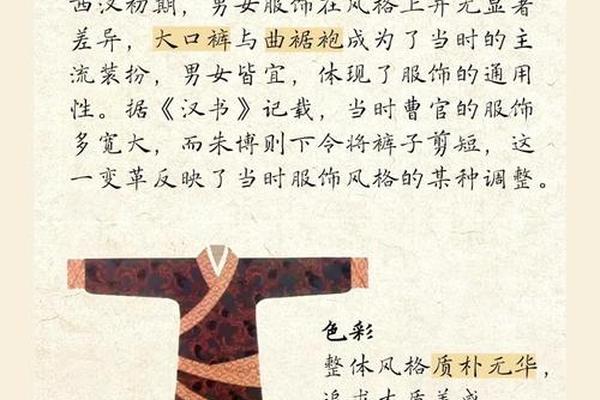 西汉初期，男女服饰在风格上并无显著
差异，大口裤与曲裾袍成为了当时的主
流装扮，男女皆宜，体现了服饰的通用
性。据《汉书》记载，当时曹官的服饰
多宽大，而朱博则下令将裤子剪短，这
一变革反映了当时服饰风格的某种调整。
色彩
整体风格质朴无华，